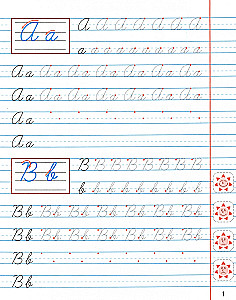 A a
A A A A A A A A
a a a a a a a a a
A a A a A a A a A a A a A a
A a A a A a A a A a A a A a
A a
A a
B b
B B B B B B B B
b b b b b b b b
B b B b B b B b B b B b B b
B b B b B b B b B b B b B b
B b
B b
1